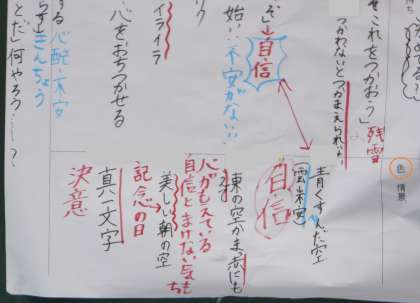 せこれをつかおう」残雪
つかわないとつかまえられない
ぞ」→自信
始い不安がない
イライラ
心をおちつかせる
する心配・不安
きんちょう
とだ」何やろう…？
色 情景
青くすんだ空
自信
東の空がま赤にも
え
心がもえている
自信とまけない気もち
美しい朝の空
記念の日
真一文字
決意